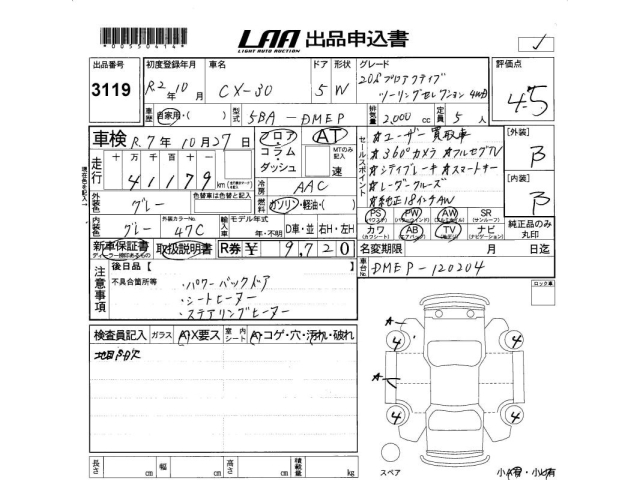 *00550414*
LAA 出品申込書
LIGHT AUTO AUCTION
出品番号 初度登録年月 車名 ドア 形状 グレード 評価点
3119 R2年10月 CX-30 5 W 20Sプロアクティブ
ツーリングセレクション 4WD 4.5
車歴 自家用・( ) 型式 5BA-DMEP 排気量 2,000 cc 定員 5 人
車検 R.7年10月27日 フロア・コラム・ダッシュ AT MTのみ記入 速
走行 十万 千百十 41179 km
セールスポイント
★ユーザー買取車
★360°カメラ ★フルセグTV
★シティブレーキ ★スマートキー
★レーダークルーズ
★純正18インチAW
[外装] B
[内装] B
冷房 AAC
燃料 ガソリン・軽油・( )
外装色 グレー 色替車では色替と記入
内装色 グレー 外装カラーNo. 47C
輸入車 モデル年式 年・不明 D車・並 右H・左H
PS PW AW SR
(パワステ) (パワーウィンド) (アルミホイル) (サンルーフ)
カワ AB TV ナビ
(エアバッグ) (テレビ) (ナビゲーション)
純正品のみ丸印
新車保証書 取扱説明書 R券 ¥ 9,720 名変期限 月 日迄
注意事項 後日品【 】
不具合箇所等
・パワーバックドア
・シートヒーター
・ステアリングヒーター
車台No. DMEP-120204
ロック車
検査員記入 ガラス A・X要ス 室内シート A・コゲ・穴・汚れ・破れ
A 4 4
A
4 4
長さ cm 幅 cm 高さ cm 積載量 kg
スペア